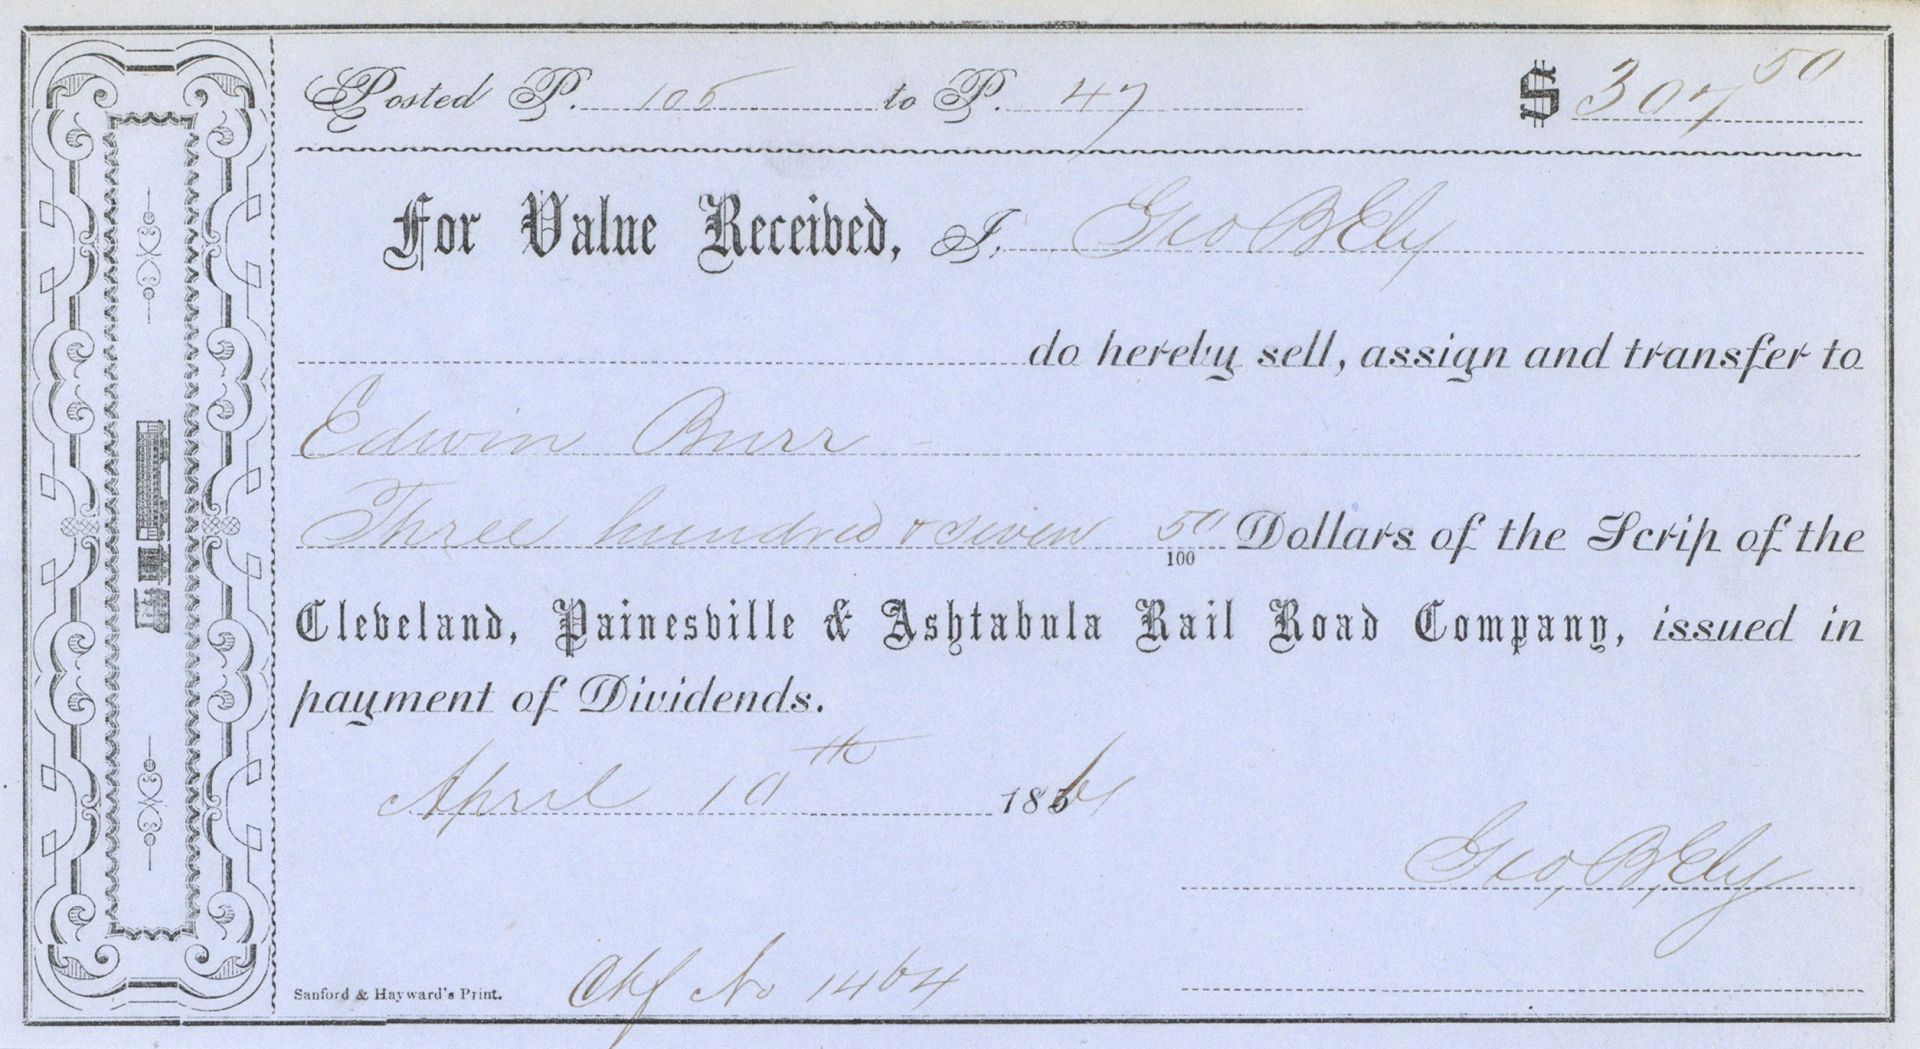 Posted P. 105 to P. 47 $ 307 50
For Value Received, I, Geo B Ely
do hereby sell, assign and transfer to
Edwin Burr
Three hundred & seven 50/100 Dollars of the Scrip of the
Cleveland, Painesville & Ashtabula Rail Road Company, issued in
payment of Dividends.
April 10th 1861
Geo, B, Ely
Sanford & Hayward's Print. No 1464